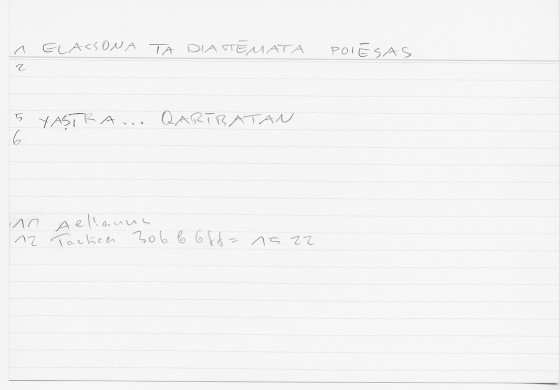 1 ELASSONA TA DIASTĒMATA POIĒSAS
2
5 YAṢTRA... QARĪBATAN
6
11 Aelianus
12 Tactica 306 b 6ff = 15 22